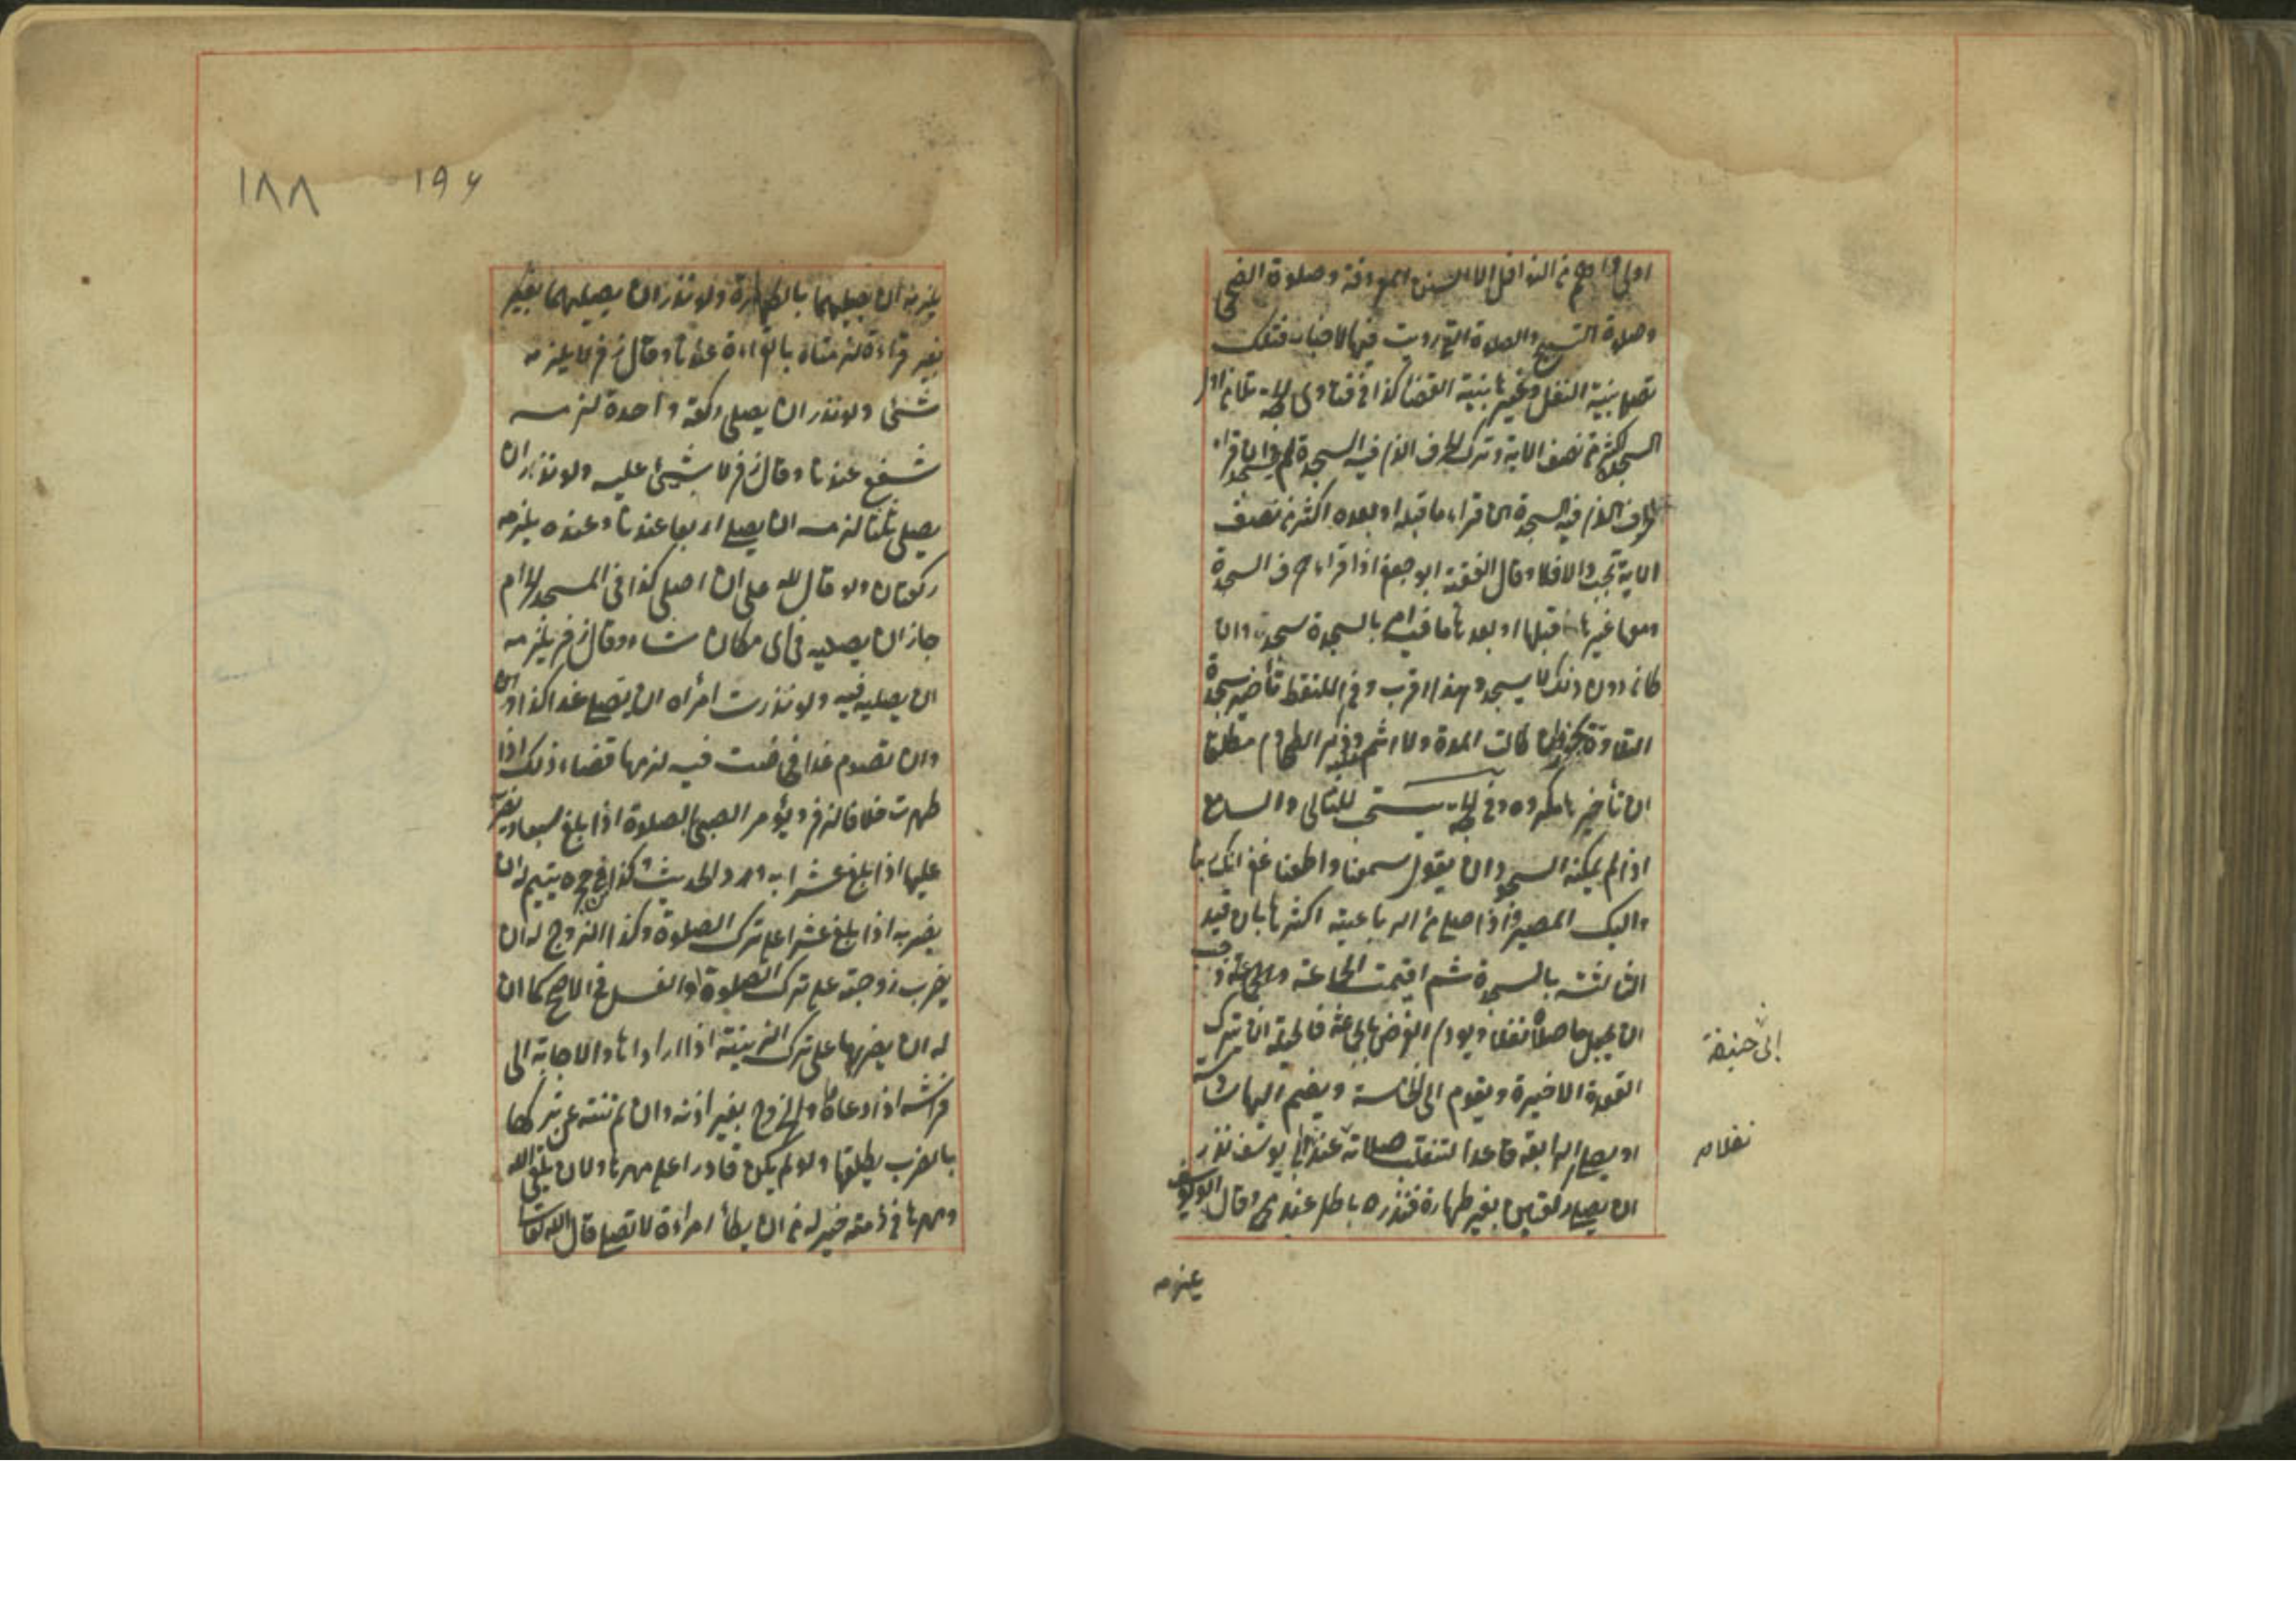 اولى واهم من النوافل الا السنن المعروفة وصلوة الضحى
وصلوة التسبيح والصلوة التى رويت فيها الاخبار فتلك
تصلى بنية النفل وغيرها بنية القضا كذا فى فتاوى الحجة تلا من اول
السجدة اكثر من نصف الاية وترك الحرف الذى فيه السجدة لم يسجد وان قراء
الحرف الذى فيه السجدة ان قراء ما قبله او بعده اكثر من نصف
الاية تجب والا فلا وقال الفقيه ابو جعفر اذا قراء حرف السجدة
ومعها غيرها قبلها او بعدها ما فيه امر بالسجدة سجد وان
كان دون ذلك لا يسجد وهذا اقرب وفى الملتقط تأخير سجدة
التلاوة يجوز وان طالت المدة ولا اثم وذكر الطحاوى مطلقا
ان تأخيرها مكروه وفى الحجة يستحب للتالى والسامع
اذا لم يمكنه السجود ان يقول سمعنا واطعنا غفرانك ربنا
واليك المصير واذا صلى من الرباعية اكثرها بان قيد
الثالثة بالسجدة ثم اقيمت الجماعة
ان يجعل ما صلاه نفلا ويودى الفرض بالجماعة فالحيلة ان يترك
القعدة الاخيرة ويقوم الى الخامسة ويضم اليها سادسة
او يصلى الرابعة قاعدا لتنقلب صلاته عند ابى يوسف نذر
ان يصلى ركعتين بغير طهارة فنذره باطل عند محمد وقال ابو يوسف
ابى حنيفة
نفلا م
يلزمه
١٨٨
١٩٦
يلزمه ان يصليهما بالطهارة ولو نذر ان يصليهما بغير
بغير قراءة لزمتاه بالقراءة عندنا وقال زفر لا يلزمه
شئ ولو نذر ان يصلى ركعة واحدة لزمه
شفع عندنا وقال زفر لا شئ عليه ولو نذر ان
يصلى ثلثا لزمه ان يصلى اربعا عندنا وعنده يلزمه
ركعتان ولو قال لله على ان اصلى كذا فى المسجد الحرام
جاز ان يصليه فى اى مكان شاء وقال زفر يلزمه
ان يصليه فيه ولو نذرت امرأه ان تصلى غدا كذا او ان
وان تصوم غدا فحاضت فيه لزمها قضاء ذلك اذا
طهرت خلافا لزفر ويؤمر الصبى بالصلوة اذا بلغ سبعا ويضرب
عليها اذا بلغ عشرا به ورد الحديث كذا فى حجره يتيم له ان
يضربه اذا بلغ عشرا على ترك الصلوة وكذا الزوج له ان
يضرب زوجته على ترك الصلوة والغسل فى الاصح كما ان
له ان يضربها على ترك الزينة اذا ارادها والاجابة الى
فراشه اذا دعاها والخروج بغير اذنه وان لم تنته عن تركها
بالضرب يطلقها ولو لم يكن قادرا على مهرها ولان يلقى الله
ومهرها فى ذمته خير له من ان يطأ امراءة لا تصلى قال الله تعالى